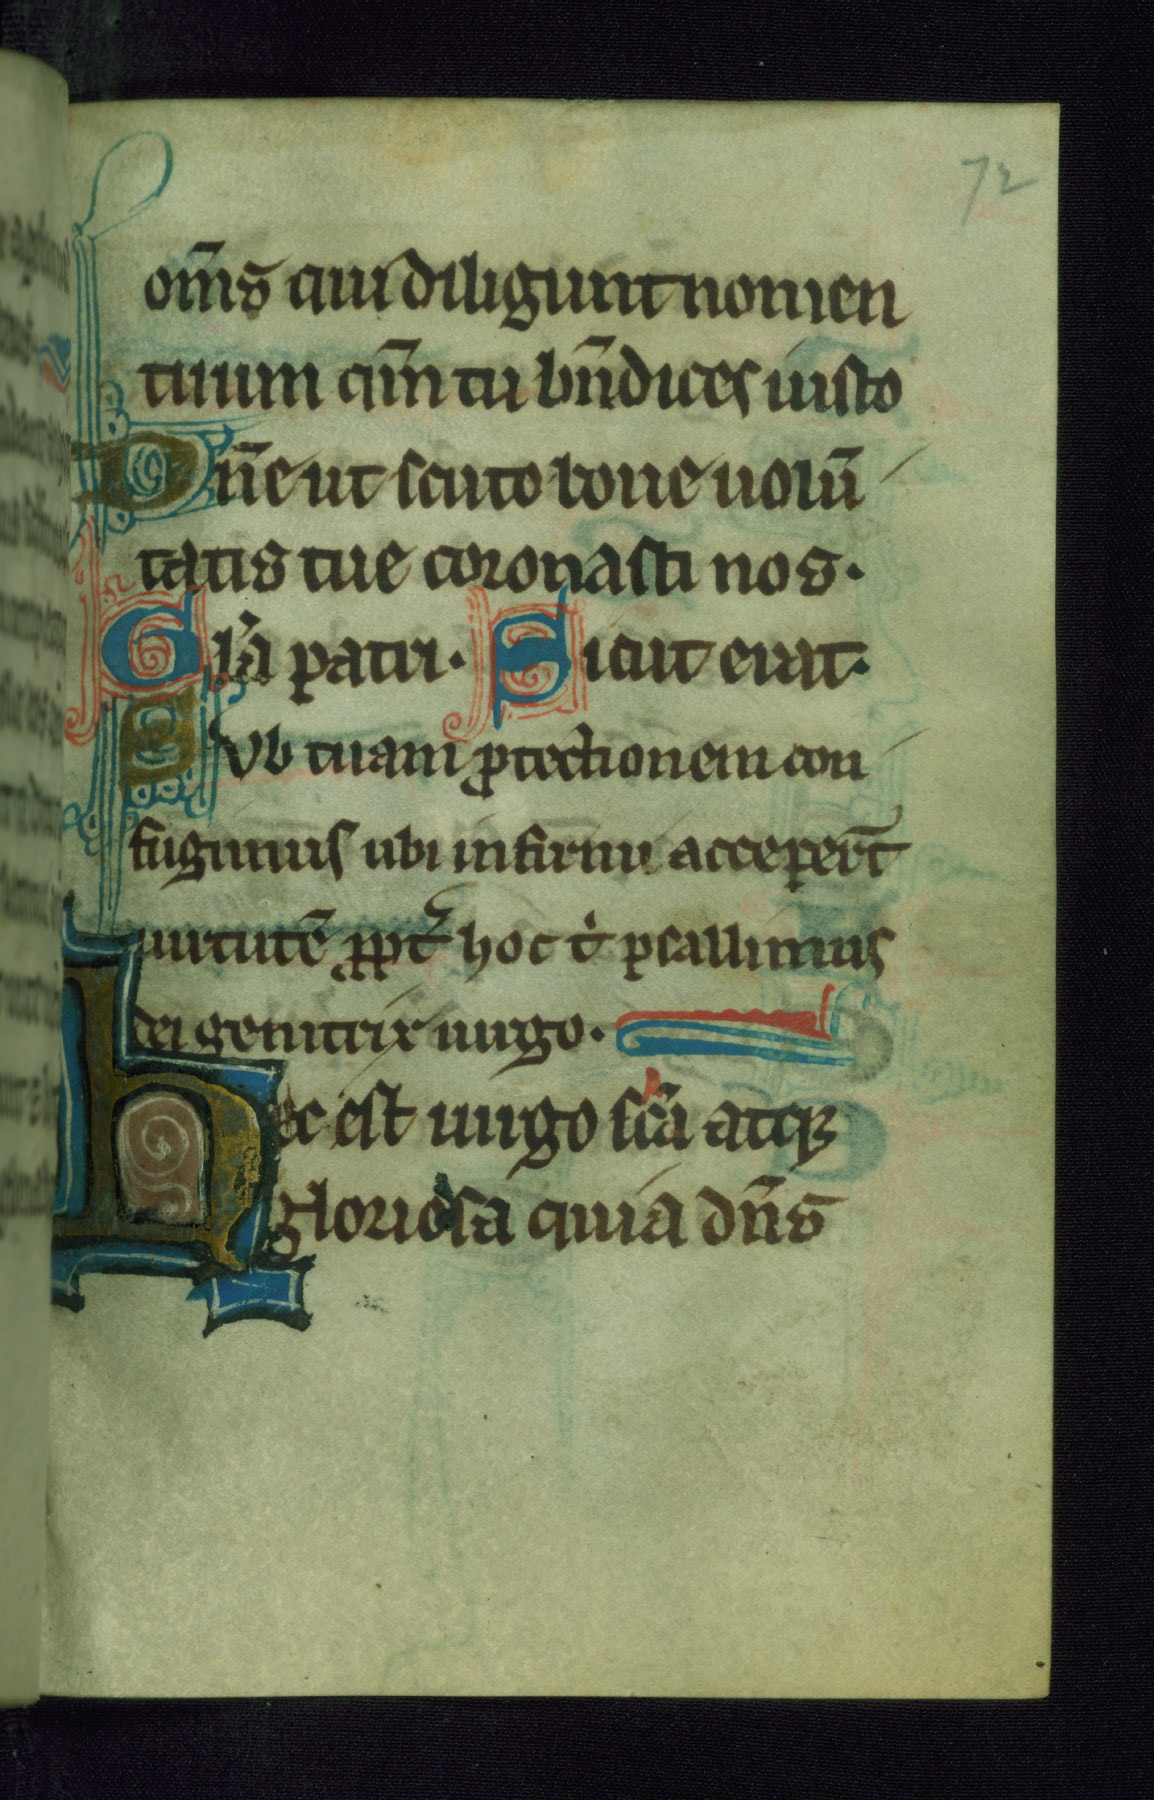 72
om̄s qui diligunt nomen
tuum qm̄ tu bn̄dices iusto
Dn̄e ut scuto bone uolū
tatis tue coronasti nos.
Gl̄ia patri. Sicut erat.
SVb tuam ꝓtectionem con
fugimus ubi infirmi acceper̄t
uirtutē ꝓpt̾ hoc t̾ psallimus
dei genitrix uirgo.
Hec est uirgo sc̄a atqꝫ
gloriosa quia dn̄s